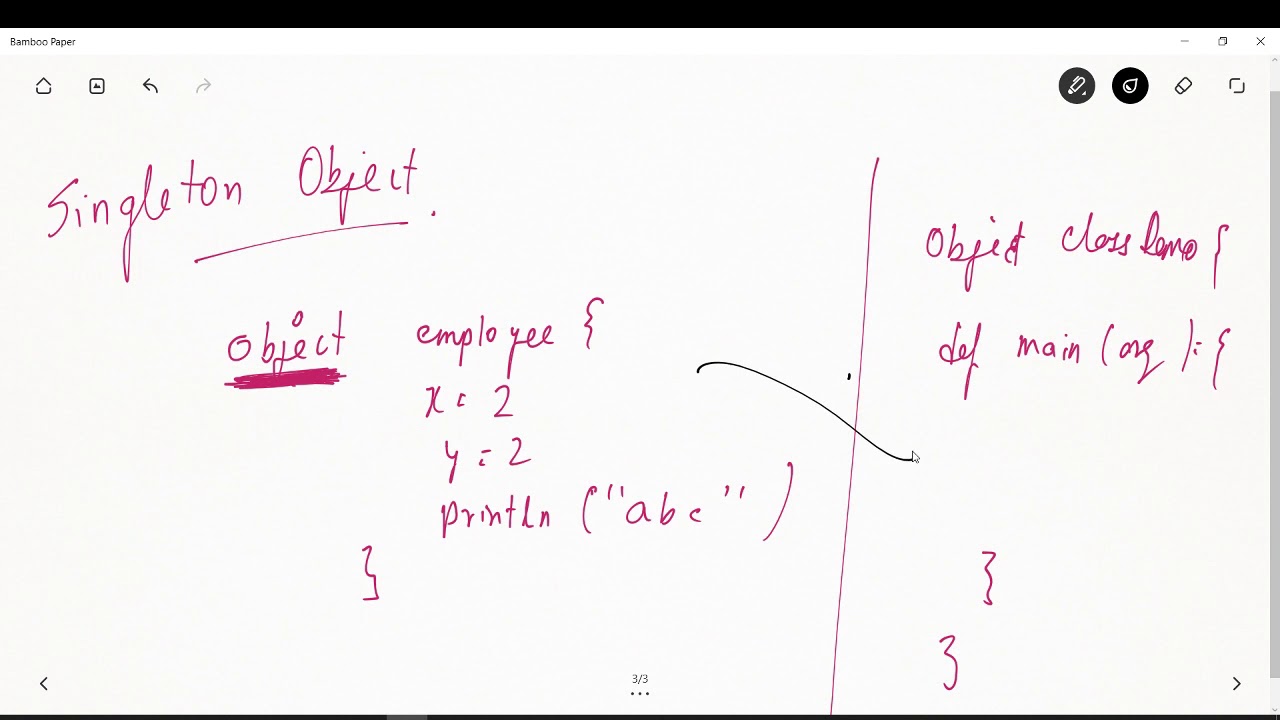 Bamboo Paper
Singleton Object.
object employee {
x = 2
y = 2
println ("abc")
}
Object classDemo {
def main (arg) = {
}
}
3/3